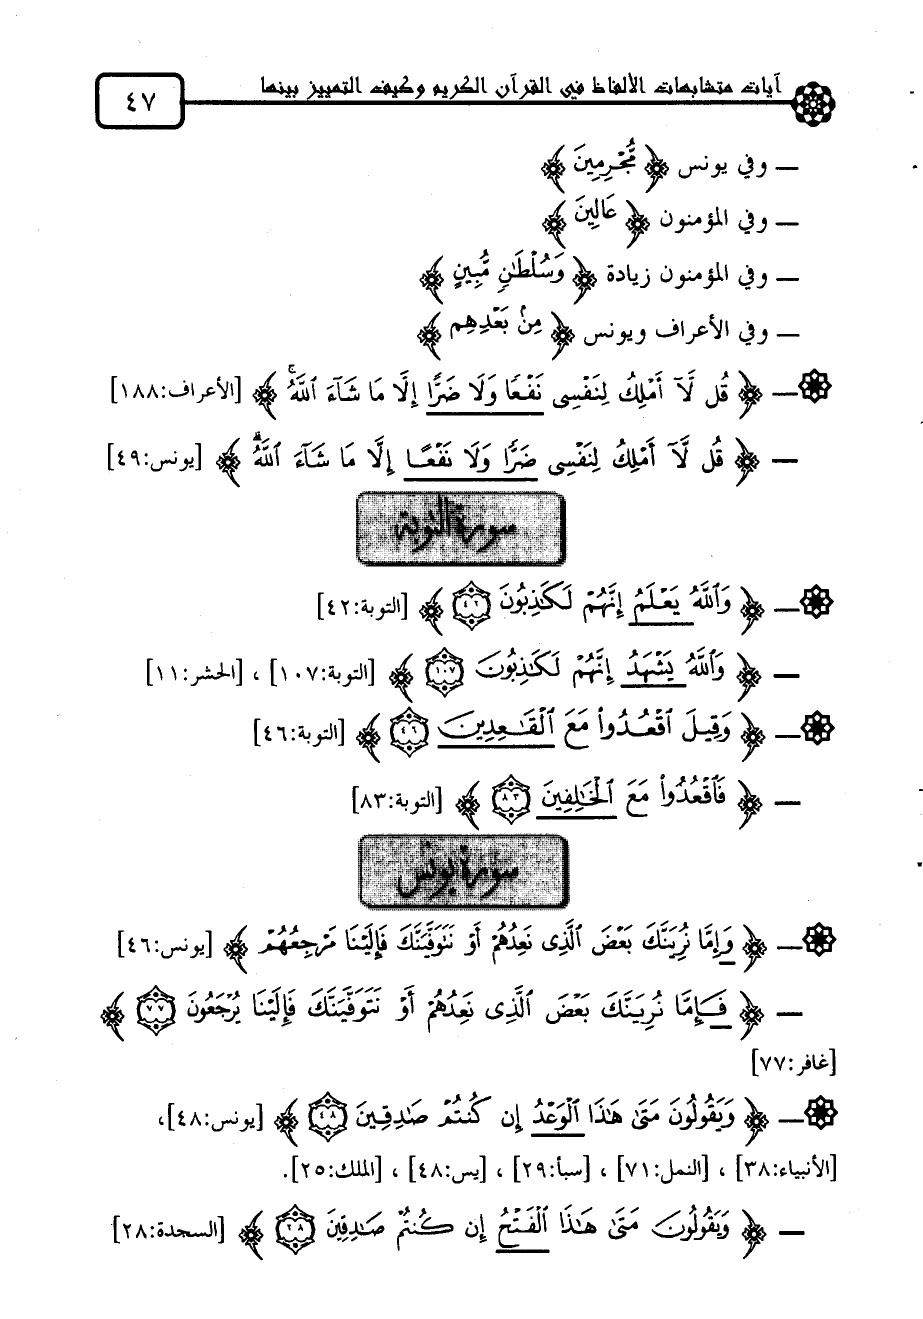 آيات متشابهات الألفاظ في القرآن الكريم وكيف التمييز بينها
٤٧
— وفي يونس ﴿ مُّجْرِمِينَ ﴾
— وفي المؤمنون ﴿ عَالِينَ ﴾
— وفي المؤمنون زيادة ﴿ وَسُلْطَٰنٍ مُّبِينٍ ﴾
— وفي الأعراف ويونس ﴿ مِنۢ بَعْدِهِم ﴾
— ﴿ قُل لَّآ أَمْلِكُ لِنَفْسِى نَفْعًا وَلَا ضَرًّا إِلَّا مَا شَآءَ ٱللَّهُ ۚ ﴾ [الأعراف:١٨٨]
— ﴿ قُل لَّآ أَمْلِكُ لِنَفْسِى ضَرًّا وَلَا نَفْعًا إِلَّا مَا شَآءَ ٱللَّهُ ۗ ﴾ [يونس:٤٩]
سورة التوبة
— ﴿ وَٱللَّهُ يَعْلَمُ إِنَّهُمْ لَكَٰذِبُونَ ٤٢ ﴾ [التوبة:٤٢]
— ﴿ وَٱللَّهُ يَشْهَدُ إِنَّهُمْ لَكَٰذِبُونَ ١٠٧ ﴾ [التوبة:١٠٧] ، [الحشر:١١]
— ﴿ وَقِيلَ ٱقْعُدُوا۟ مَعَ ٱلْقَٰعِدِينَ ٤٦ ﴾ [التوبة:٤٦]
— ﴿ فَٱقْعُدُوا۟ مَعَ ٱلْخَٰلِفِينَ ٨٣ ﴾ [التوبة:٨٣]
سورة يونس
— ﴿ وَإِمَّا نُرِيَنَّكَ بَعْضَ ٱلَّذِى نَعِدُهُمْ أَوْ نَتَوَفَّيَنَّكَ فَإِلَيْنَا مَرْجِعُهُمْ ﴾ [يونس:٤٦]
— ﴿ فَإِمَّا نُرِيَنَّكَ بَعْضَ ٱلَّذِى نَعِدُهُمْ أَوْ نَتَوَفَّيَنَّكَ فَإِلَيْنَا يُرْجَعُونَ ٧٧ ﴾
[غافر:٧٧]
— ﴿ وَيَقُولُونَ مَتَىٰ هَٰذَا ٱلْوَعْدُ إِن كُنتُمْ صَٰدِقِينَ ٤٨ ﴾ [يونس:٤٨]،
[الأنبياء:٣٨] ، [النمل:٧١] ، [سبأ:٢٩] ، [يس:٤٨] ، [الملك:٢٥].
— ﴿ وَيَقُولُونَ مَتَىٰ هَٰذَا ٱلْفَتْحُ إِن كُنتُمْ صَٰدِقِينَ ٢٨ ﴾ [السجدة:٢٨]